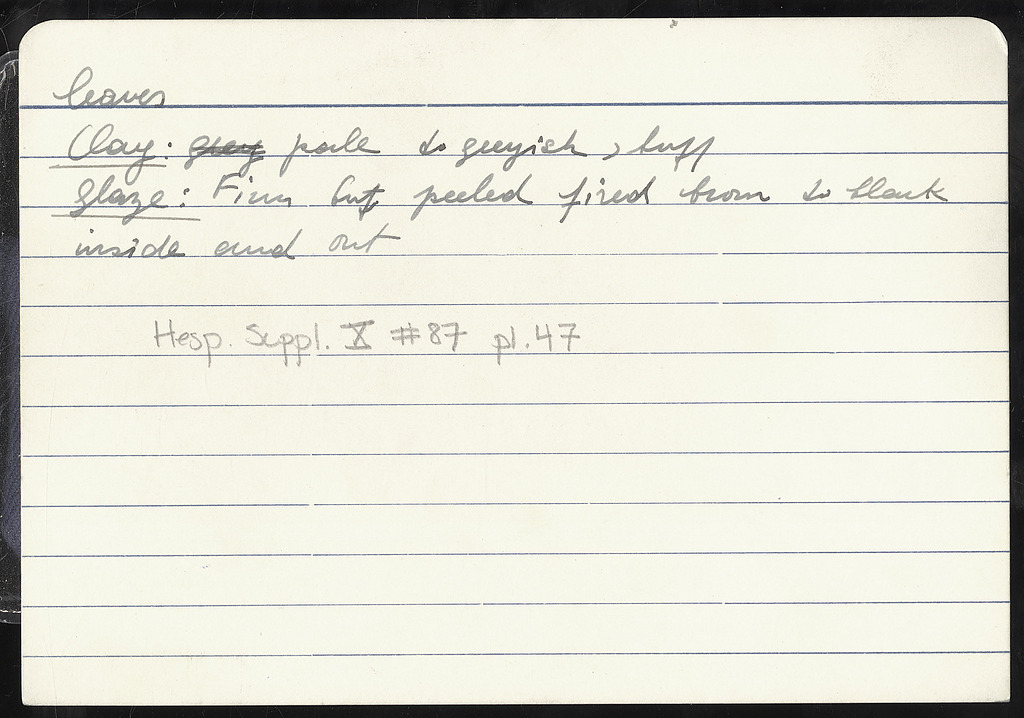 leaves
Clay: grey pale to greyish, buff
Glaze: Firm but peeled fired brown to black
inside and out
Hesp. Suppl. X #87 pl.47